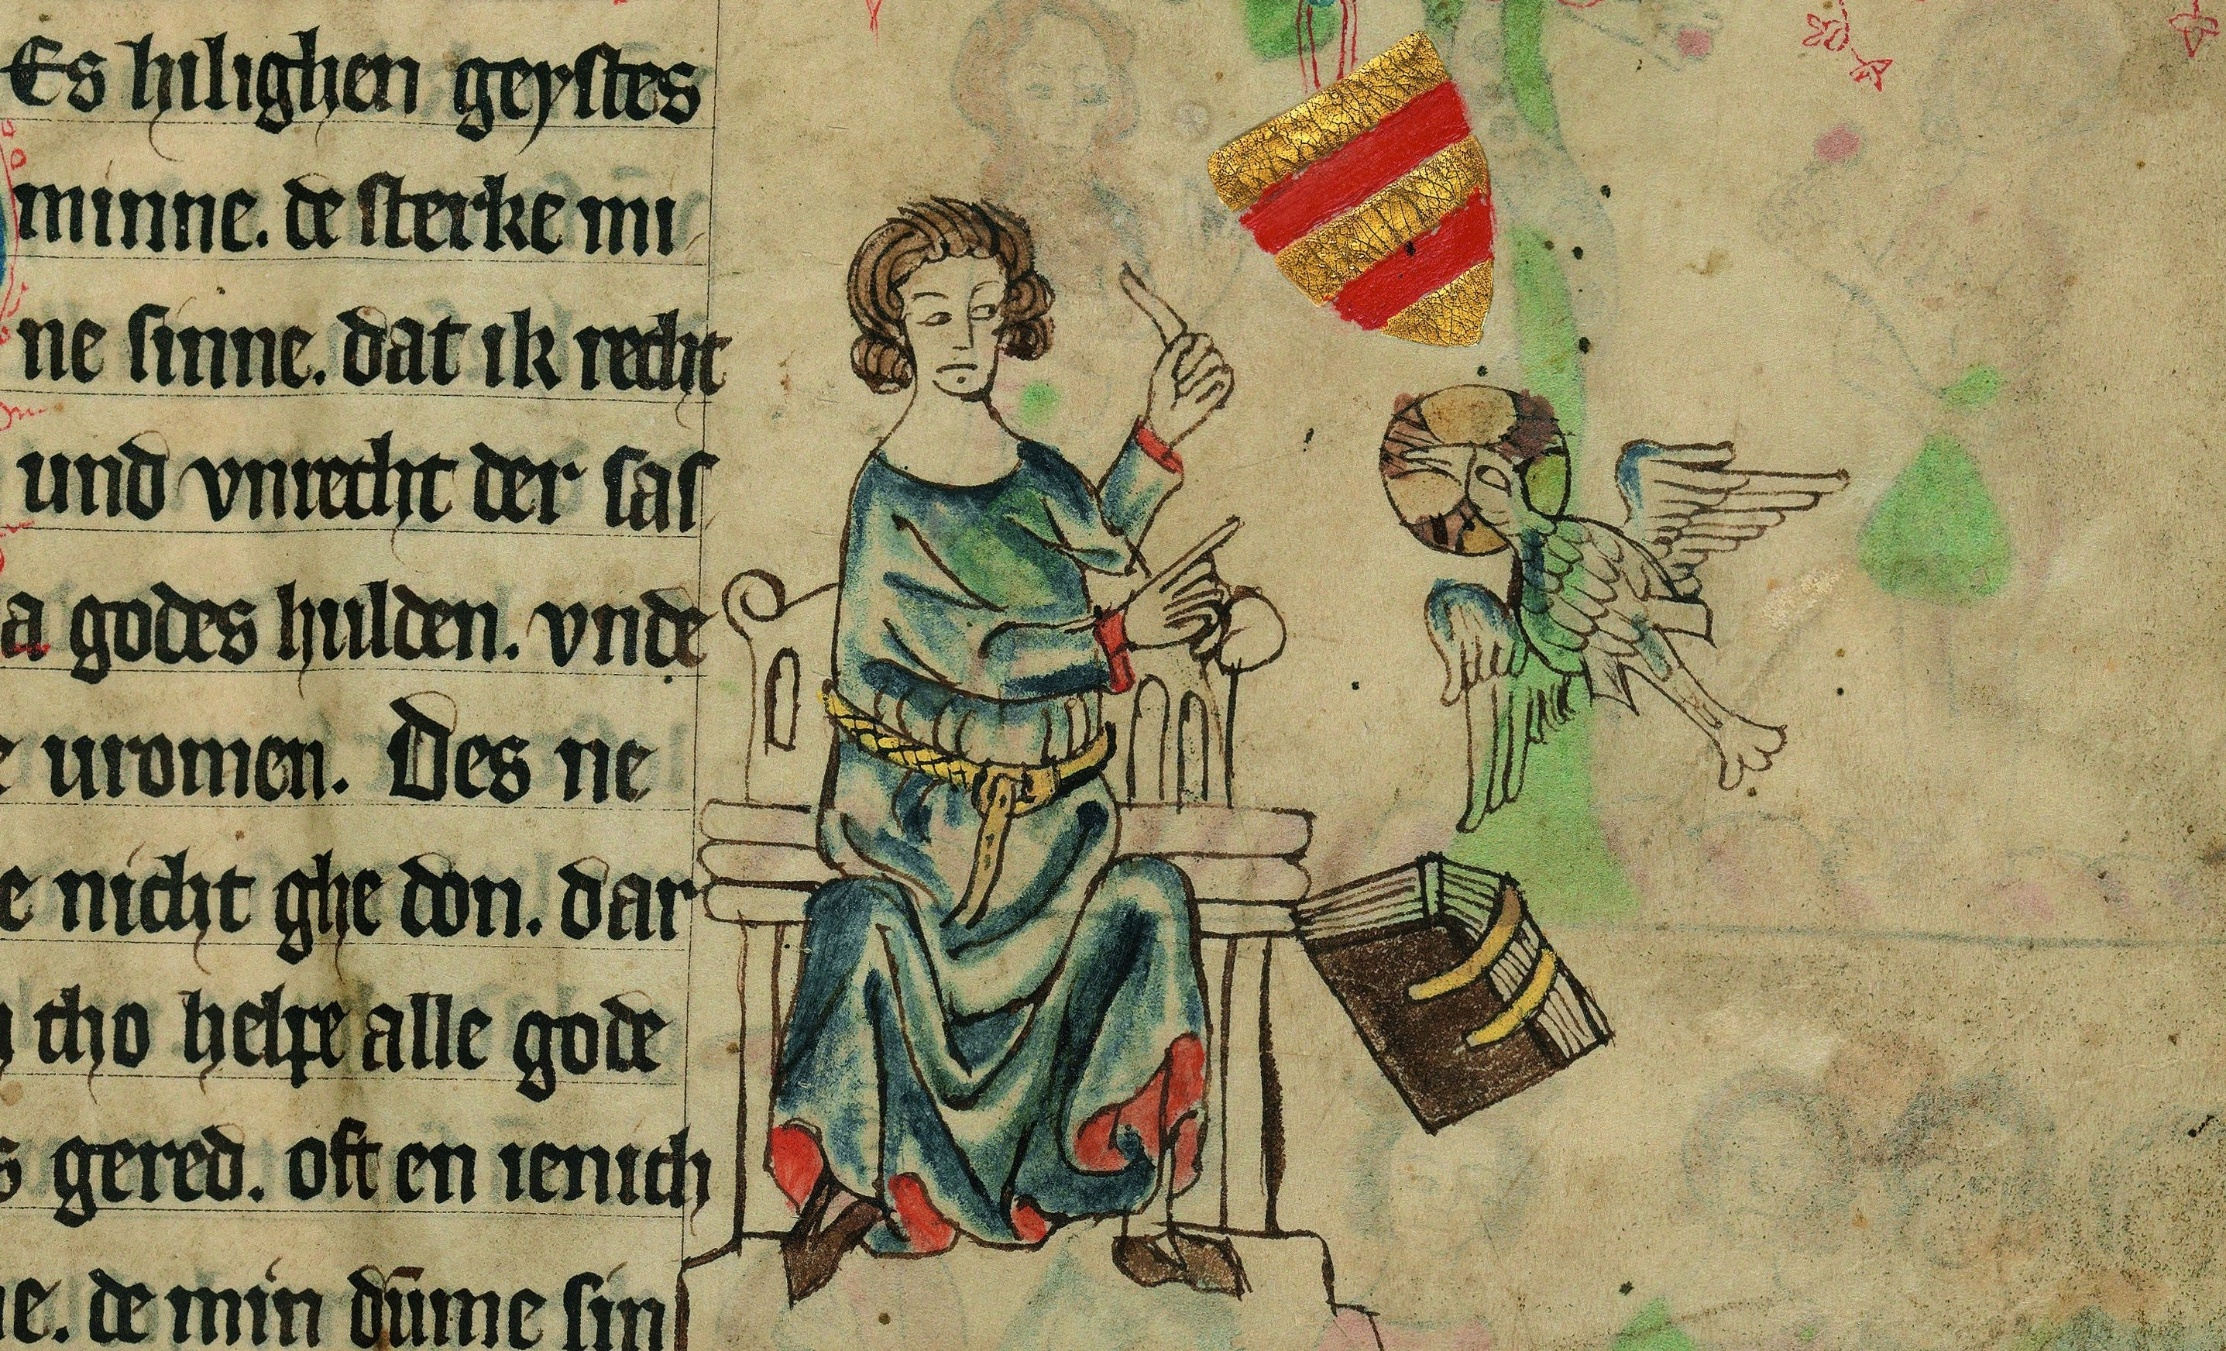 Es hilighen geystes
minne. de sterke mi
ne sinne. dat ik recht
und vnrecht der sas
godes hulden. vnde
uromen. Des ne
nicht ghe don. dar
tho helpe alle gode
gered. oft en ienich
de min dūme sin